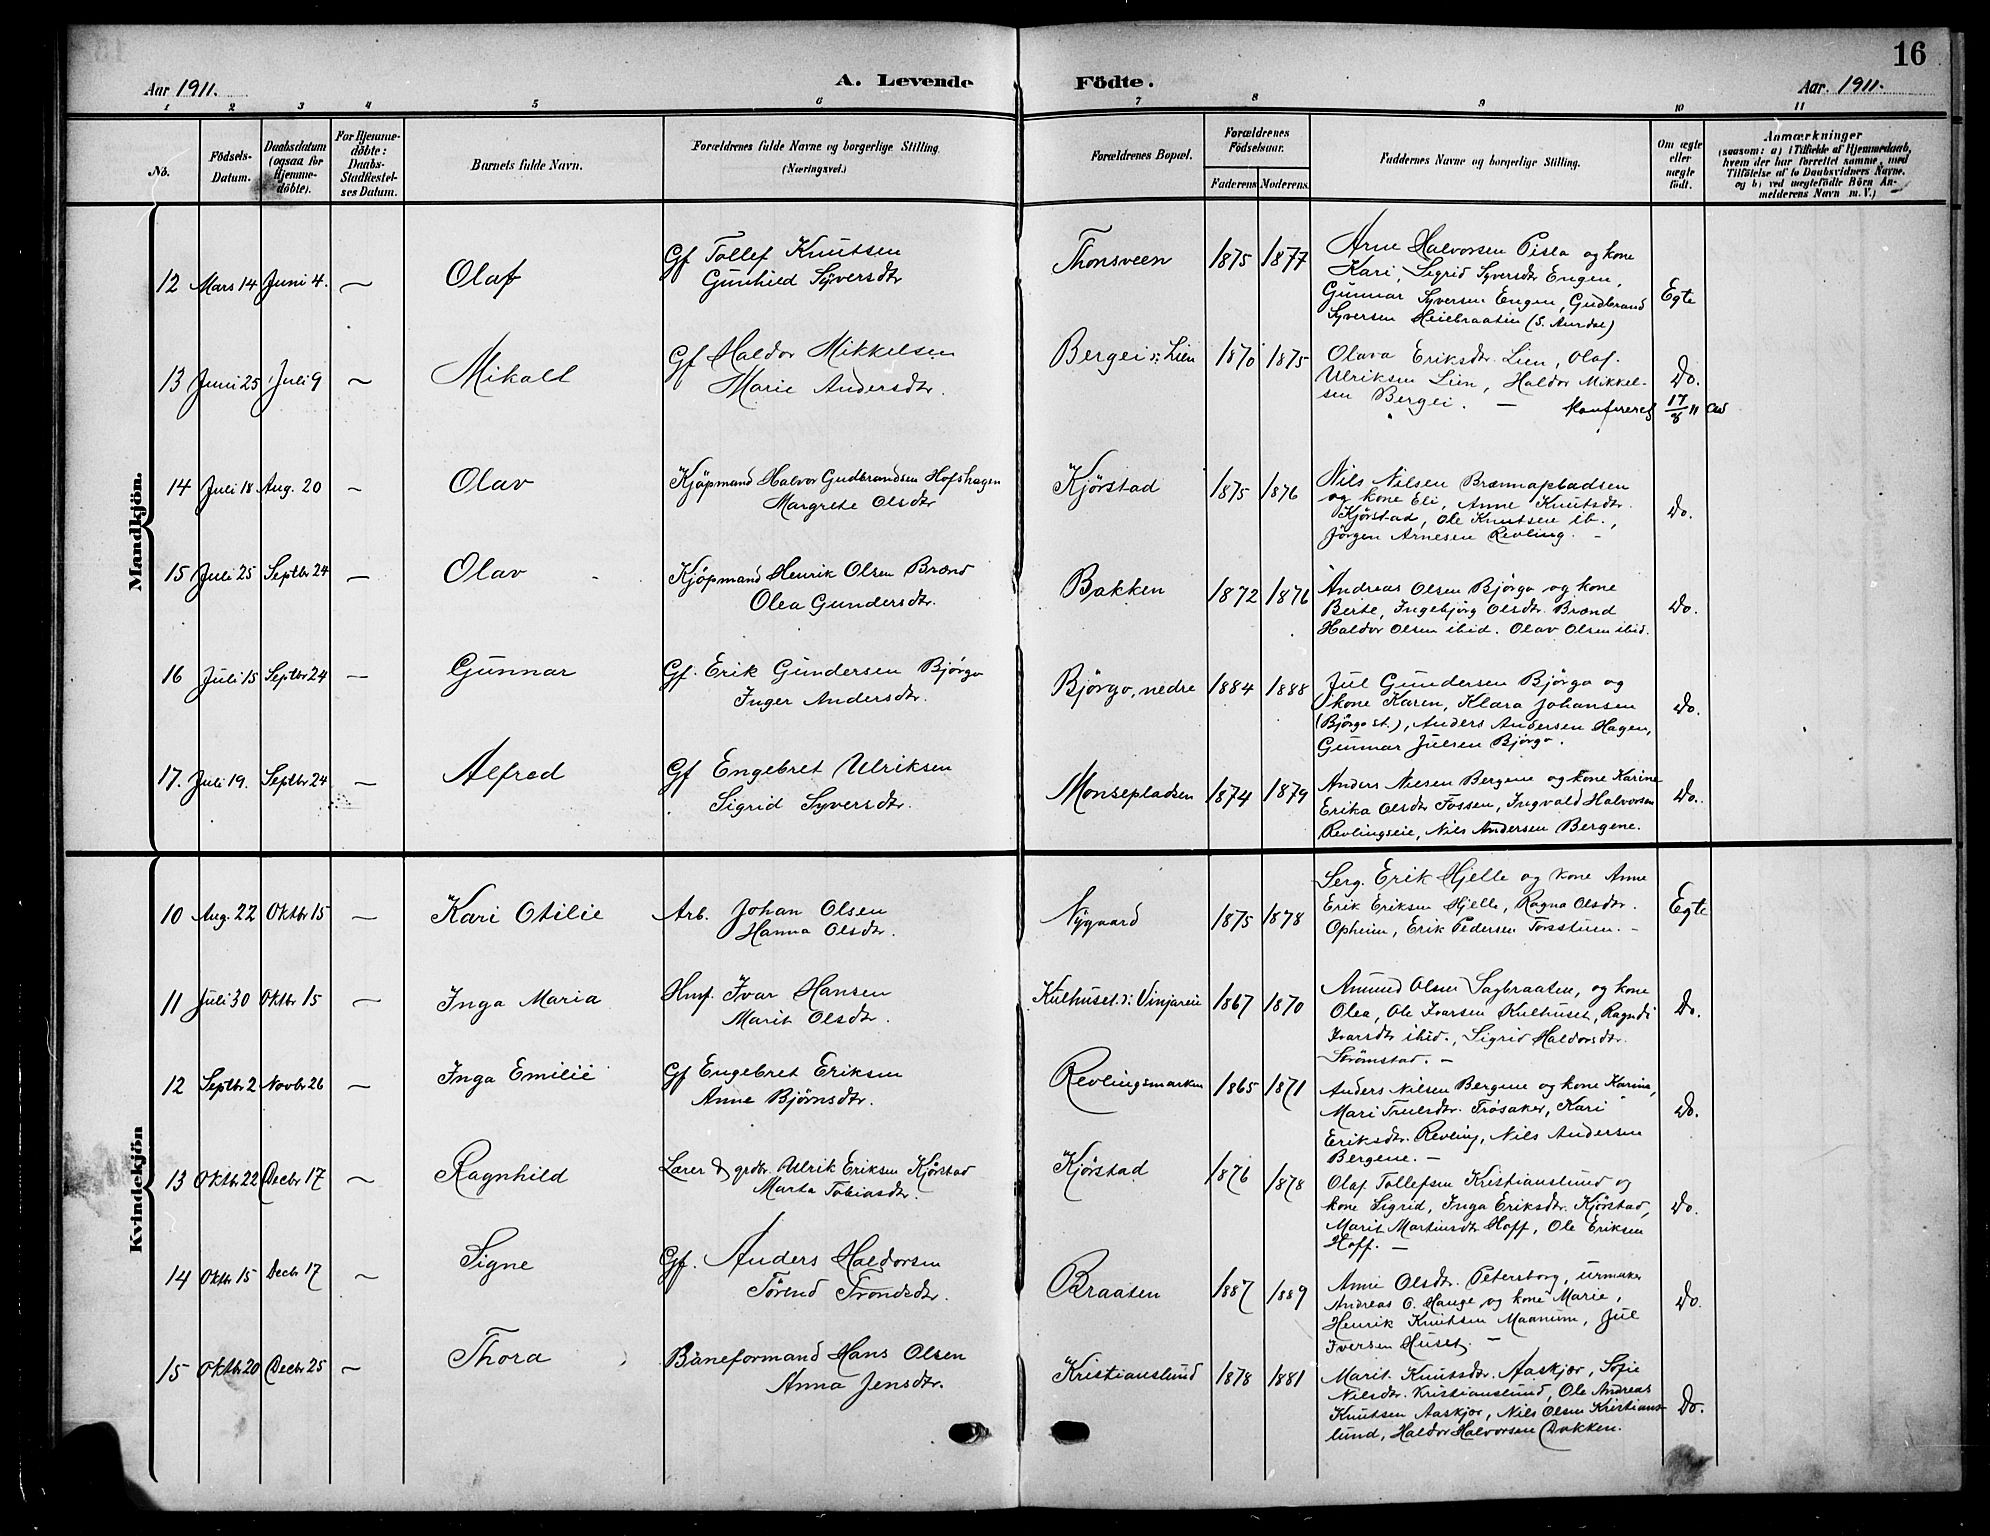 16
Aar 1911.
A. Levende Födte.
Aar. 1911.
1 2 3 4 5 6 7 8 9 10 11
No.
Födsels-Datum.
Daabsdatum (ogsaa for Hjemme-döbte).
For Hjemme-döbte: Daabs-Stadfæstelses Datum.
Barnets fulde Navn.
Forældrenes fulde Navne og borgerlige Stilling. (Næringsvei.)
Forældrenes Bopæl.
Forældrenes Födselsaar.
Faderens. Moderens.
Faddernes Navne og borgerlige Stilling.
Om ægte eller uægte födt.
Anmærkninger
(saasom: a) i Tilfælde af Hjemmedaab,
hvem der har forrettet samme, med
Tilföielse af to Daabsvidners Navne,
og b) ved uægtefödte Börn An-
melderens Navn m. V.)
Mandkjön.
12 Mars 14 Juni 4. — Olaf
Gf Tollef Knutsen
Gunhild Syversdtr
Thonsveen 1875 1877
Arne Halvorsen Pisla og kone
Kari, Sigrid Syversdtr Engen,
Gunnar Syversen Engen, Gudbrand
Syversen Heiebraaten (S. Aurdal)
Egte
13 Juni 25 Juli 9 — Mikall
Gf Haldor Mikkelsen
Marie Andersdtr.
Bergei v: Lien 1870 1875
Olava Eriksdtr. Lien, Olaf
Ulriksen Lien, Haldor Mikkel-
sen Bergei. — Konfereret 17/8 11
Do.
14 Juli 18 Aug. 20 — Olav
Kjöpmand Halvor Gudbrandsen Hofshagen
Margrete Olsdtr
Kjörstad 1875 1876
Nils Nilsen Brænnapladsen
og kone Eli, Anne Knutsdtr.
Kjörstad, Ole Knutsen ib.,
Jörgen Arnesen Revling. —
Do.
15 Juli 25 Septbr 24 — Olav
Kjöpmand Henrik Olsen Brænd
Olea Gundersdtr.
Bakken 1872 1876
Andreas Olsen Bjørgo og kone
Berte, Ingebjörg Olsdtr. Brænd
Haldor Olsen ibid. Olav Olsen ibid.
Do.
16 Juli 15 Septbr 24 — Gunnar
Gf. Erik Gundersen Bjørgo
Inger Andersdtr.
Bjørgo, nedre 1884 1888
Jul Gundersen Bjørgo og
kone Karen, Klara Johansen
(Bjørgo st.), Anders Andersen Hagen,
Gunnar Julsen Bjørgo.
Do.
17. Juli 19. Septbr 24 — Alfred
Gf Engebret Ulriksen
Sigrid Syversdtr.
Monsepladsen 1874 1879
Anders Nilsen Bergene og kone Karine
Erika Olsdtr Fossen, Ingvald Halvorsen
Revlingseie, Nils Andersen Bergene.
Do.
Kvindekjön
10 Aug. 22 Oktbr 15 — Kari Otilie
Arb. Johan Olsen
Hanna Olsdtr.
Nygaard 1875 1878
Serg. Erik Hjelle og kone Anne
Erik Eriksen Hjelle, Ragna Olsdtr.
Opheim, Erik Pedersen Forsstuen. —
Egte
11 Juli 30 Oktbr 15 — Inga Maria
Hmf. Ivar Hansen
Marit Olsdtr.
Kulhuset v: Vinjareie 1867 1870
Amund Olsen Sagbraaten, og kone
Olea, Ole Ivarsen Kulhuset, Ragndi
Ivarsdtr ibid., Sigrid Haldorsdtr.
Strömstad. —
Do.
12 Septbr 2 Novbr 26 — Inga Emilie
Gf Engebret Eriksen
Anne Bjørnsdtr.
Revlingsmarken 1865 1871
Anders Nilsen Bergene og kone Karine,
Mari Truelsdtr. Frösaker, Kari
Eriksdtr. Revling, Nils Andersen
Bergene. —
Do.
13 Oktbr 22 Decbr 17 — Ragnhild
Lærer & grdbr. Ulrik Eriksen Kjörstad
Marta Tobiasdtr.
Kjörstad 1876 1878
Olaf Tollefsen Kristianslund og
kone Sigrid, Inga Eriksdtr. Kjörstad,
Marit Martinsdtr Hoff, Ole Eriksen
Hoff. —
Do.
14 Oktbr 15 Decbr 17 — Signe
Gf. Anders Haldorsen
Törend Trondsdtr.
Braaten 1887 1889
Anne Olsdtr. Petersborg, urmaker
Andreas O. Hauge og kone Marie,
Henrik Knutsen Maanum, Jul
Iversen Huset. —
Do.
15 Oktbr 20 Decbr 25 — Thora
Baneformand Hans Olsen
Anna Jensdtr.
Kristianslund 1878 1881
Marit Knutsdtr. Aaskjær, Sofie
Nilsdtr. Kristianslund, Ole Andreas
Knutsen Aaskjær, Nils Olsen Kristians-
lund, Haldor Halvorsen Dokken.
Do.